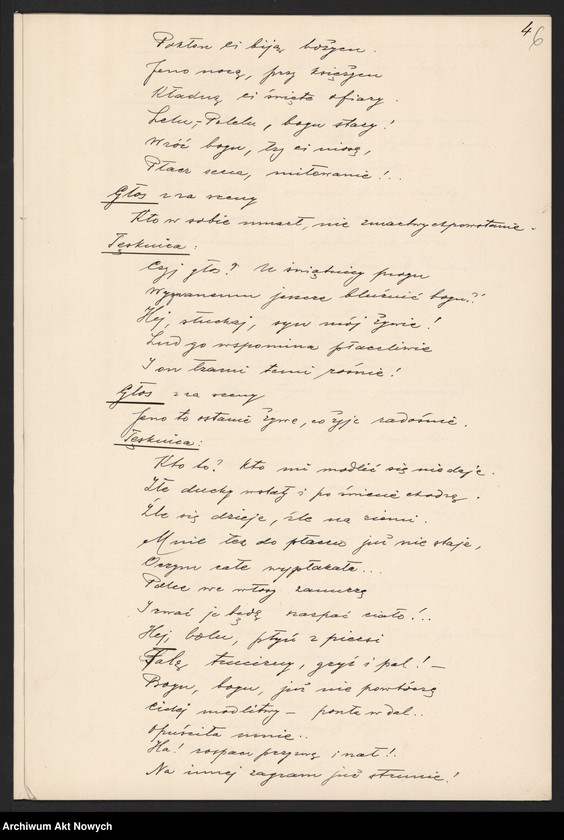 4
6
Pokłon ci biją bożycu.
Jeno nocą, przy księżycu
Kładną ci święte ofiary.
Lelu-Polelu, bogu stary!
Wróć bogu, łzy ci niosę,
Płacz serca, miłowanie!..
Głos z za sceny
Kto w sobie umarł, nie zmartwychpowstanie.
Tęsknica:
Czyj głos? U świątnicy progu
Wyzwanemu jeszcze bluźnić bogu?!
Hej, słuchaj, synu mój Żywie!
Lud go wspomina płaczliwie
I on łzami temi rośnie!
Głos z za sceny
Jeno to ostanie żywe, co żyje radośnie.
Tęsknica:
Kto to? kto mi modlić się nie daje.
Złe duchy wstały i po świecie chodzą.
Źle się dzieje, źle na ziemi.
Mnie łez do płaczu już nie staje,
Oczym całe wypłakała...
Palce we włosy zanurzę
I rwać je będę naspać ciało!..
Hej, bolu, płyń z piersi
Falą trucizny, gryź i pal! —
Bogu, bogu, już nie powtórzę
cichej modlitwy — poszła w dal..
opuściła mnie..
Ha! rozpacz przyzwę i szał!.
Na innej zagram już strunie!
Archiwum Akt Nowych